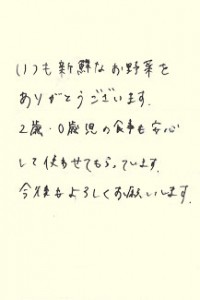 いつも新鮮なお野菜を
ありがとうございます.
2歳・0歳児の食事も安心
して使わせてもらっています.
今後もよろしくお願いします.